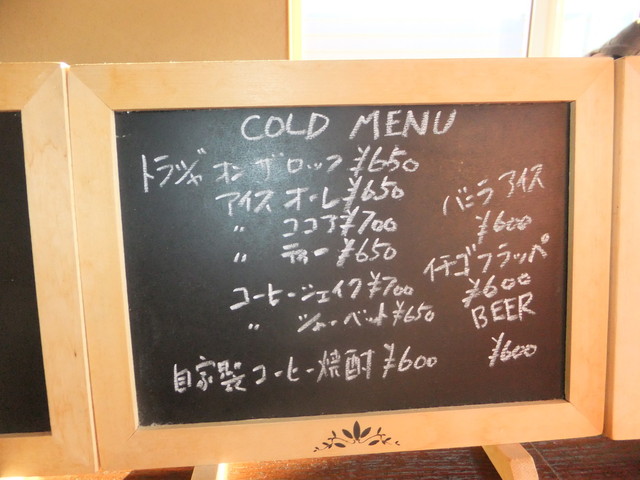 COLD MENU
トラジャ オン ザ ロック ¥650
アイス オーレ ¥650
〃 ココア ¥700
〃 ティー ¥650
コーヒーシェイク ¥700
〃 シャーベット ¥650
自家製コーヒー焼酎 ¥600
バニラアイス
¥600
イチゴフラッペ
¥600
BEER
¥600